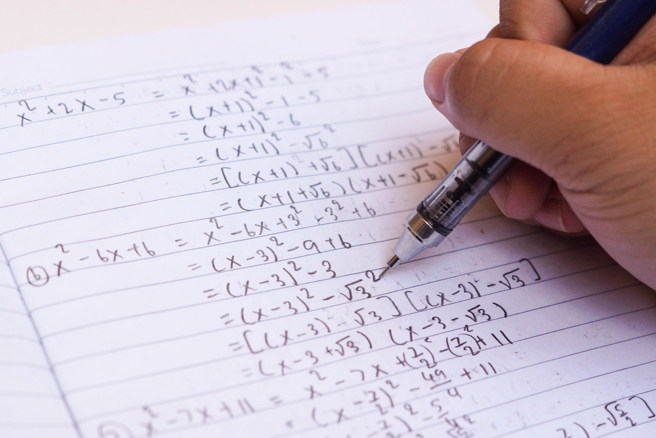 Subject :
x² + 2x - 5 = x² + 2x + 1² - 1² - 5
= (x+1)² - 1 - 5
= (x+1)² - 6
= (x+1)² - √6²
= [(x+1) + √6] [(x+1) - √
= (x+1+√6) (x+1-√6)
(b) x² - 6x + 6 = x² - 6x + 3² - 3² + 6
= (x-3)² - 9 + 6
= (x-3)² - 3
= (x-3)² - √3²
= [(x-3) - √3] [(x-3) - √3]
= (x-3+√3) (x-3-√3)
x² - 7x + 11 = x² - 7x + (7/2)² - (7/2)² + 11
= (x - 7/2)² - 49/4 + 11
) - √5/2]